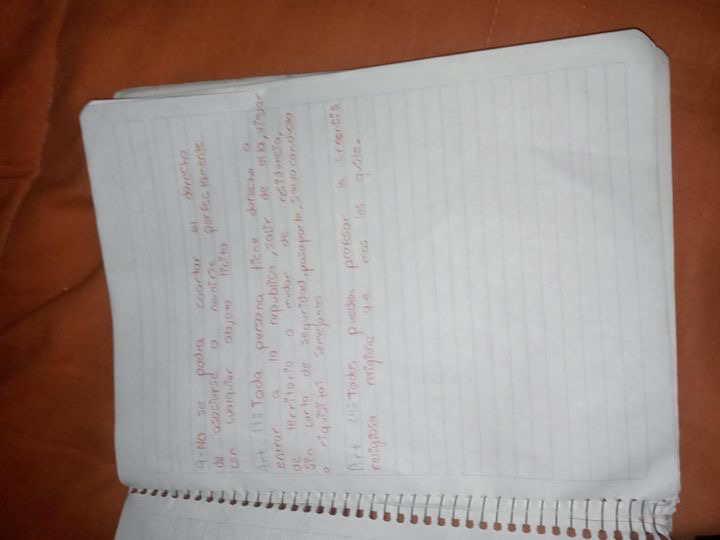 9=No se podra coartar el derecho
de asociarse o reunirse perfectamente
con cualquier objeto licito
Art 11=Toda persona tiene derecho a
entrar a la republica, salir de ella, viajar
de territorio o mudar de residencia,
sin carta de seguridad, pasaporte, salvoconducto
o riquisitos semejantes
Art 24=Todos pueden profesar la creencia
religiosa religiosa que mas les guste.